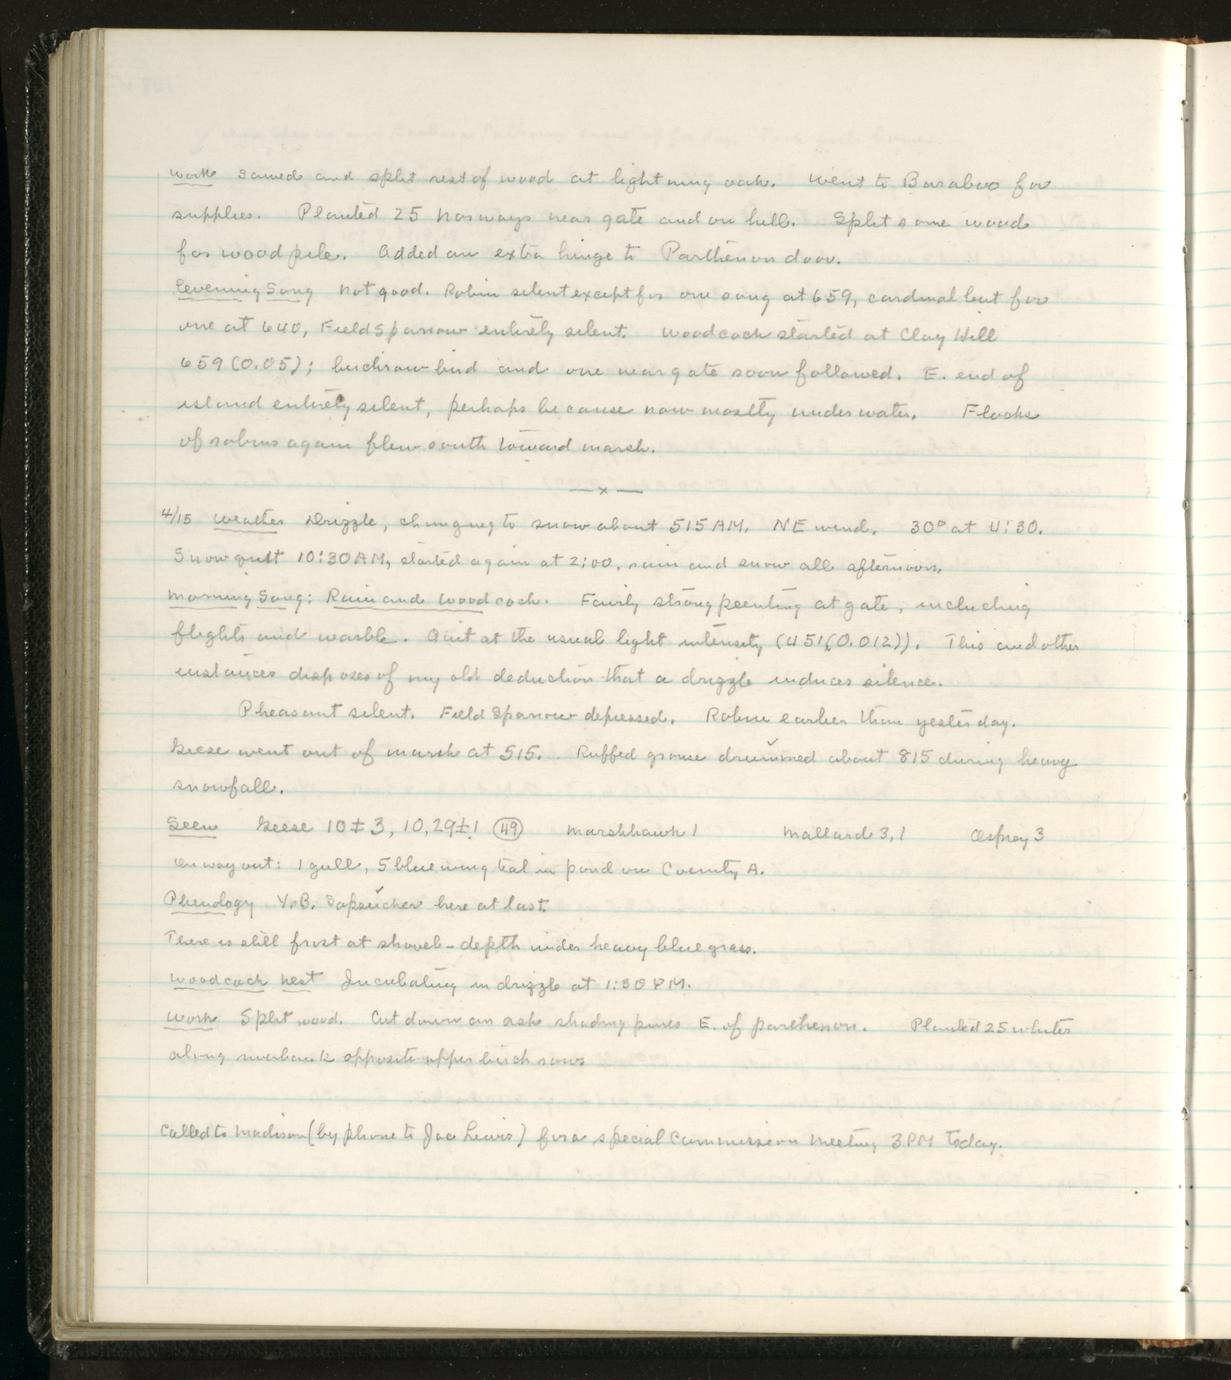 Work Sawed and split rest of wood at lightning oak. Went to Baraboo for
supplies. Planted 25 Norways near gate and on hill. Split some wood
for wood pile. Added an extra hinge to Parthenon door.
Evening Song Not good. Robin silent except for one song at 659, cardinal but for
one at 640, Field Sparrow entirely silent. Woodcock started at Clay Hill
659 (0.05); birchrow bird and one near gate soon followed. E. end of
island entirely silent, perhaps because now mostly under water. Flocks
of robins again flew south toward marsh.
—x—
4/15 Weather Drizzle, changing to snow about 515 AM. NE wind. 30° at 4:30.
Snow quit 10:30 AM, started again at 2:00, rain and snow all afternoon.
Morning Song: Rain and Woodcock. Fairly strong peenting at gate, including
flights and warble. Quit at the usual light intensity (451(0.012)). This and other
instances disposes of my old deduction that a drizzle induces silence.
Pheasant silent. Field Sparrow depressed. Robin earlier than yesterday.
Geese went out of marsh at 515. Ruffed grouse drummed about 815 during heavy
snowfall.
Seen Geese 10±3, 10, 29±1 (49) Marshhawk 1 Mallard 3,1 Osprey 3
On way out: 1 gull, 5 bluewing teal in pond on County A.
Phenology Y.B. Sapsucker here at last.
There is still frost at shovel-depth under heavy bluegrass.
Woodcock Nest Incubating in drizzle at 1:30 PM.
Work Split wood. Cut down an ash shading pines E. of parthenon. Planted 25 whites
along riverbank opposite upper birch rows
Called to Madison (by phone to Joe Lewis) for a special Commission Meeting 3PM today.